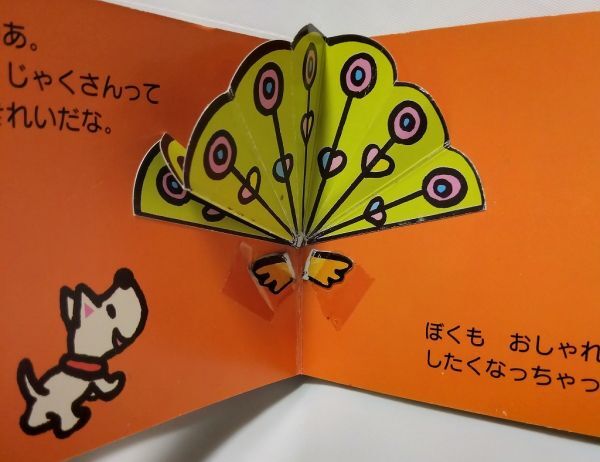 あ。
じゃくさんって
きれいだな。
ぼくも おしゃれ
したくなっちゃっ